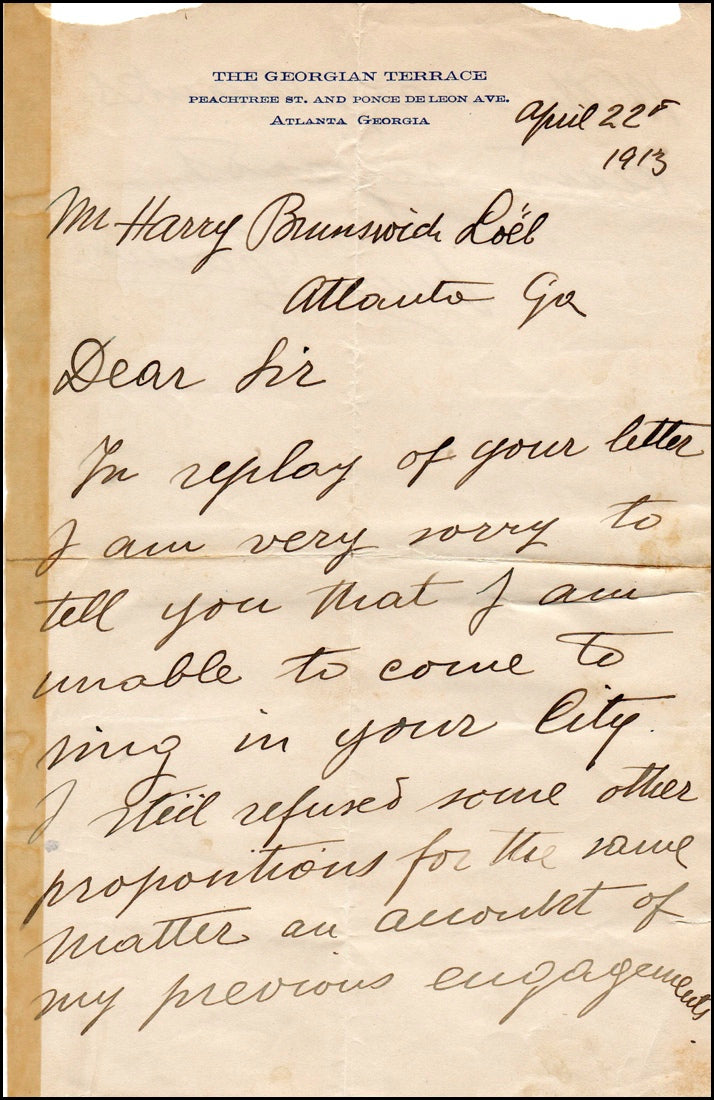 THE GEORGIAN TERRACE
PEACHTREE ST. AND PONCE DE LEON AVE.
ATLANTA GEORGIA
April 22
1913
Mr Harry Brunswich Loëb
Atlanta Ga
Dear Sir
In replay of your letter
I am very sorry to
tell you that I am
unable to come to
sing in your City.
I still refused some other
propositions for the same
matter an of
my previous engagements.